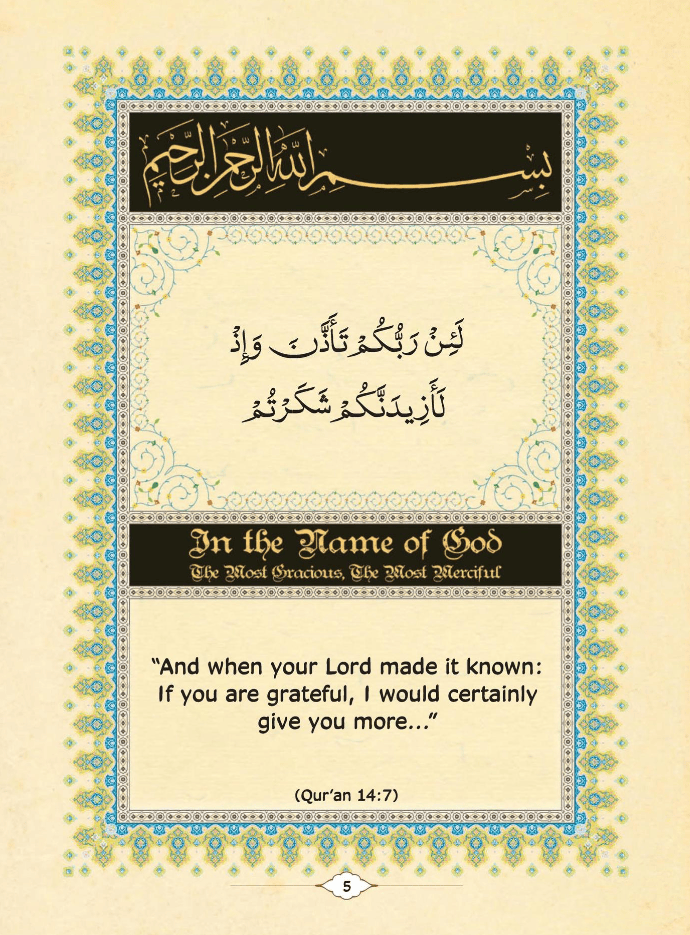 بِسْمِ اللَّهِ الرَّحْمَٰنِ الرَّحِيمِ
لَئِنْ رَبُّكُمْ تَأَذَّنَ وَإِذْ
لَأَزِيدَنَّكُمْ شَكَرْتُمْ
In the Name of God
The Most Gracious, The Most Merciful
“And when your Lord made it known:
If you are grateful, I would certainly
give you more...”
(Qur’an 14:7)
5